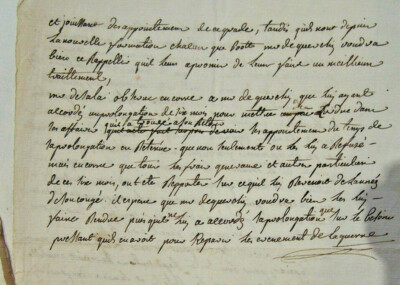 et jouissant des appointement de ce grade, tandis quils nont depuis
la nouvelle formation chacun que Poste mr de quervelay voudra
bien ce Rappeller quil leur a promis de leur faire un meilleur
traittement,
mr de Sala observe encorre a mr de que, que luy ayant
accordés une prolongation de six mois pour mettre de lordre dans
ses affaires les appointement du temps de
sa prolongation en Retenue. que non seulement on les luy a Refusé
mais encorre que tous les frais generaux et autres particuliers
de ces six mois, ont eté Reportés sur ce quil luy Revenoit de lannée
de son congé. il espere que mr de voudra bien les luy
faire Rendre puis quil ne luy a accordés sa prolongation que sur le besoin
pressant quil en avoit pour Reparer les evenement de la guerre